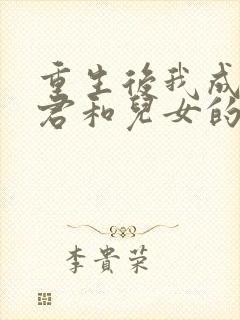 重生後我成
君和兒女的
李貴荣